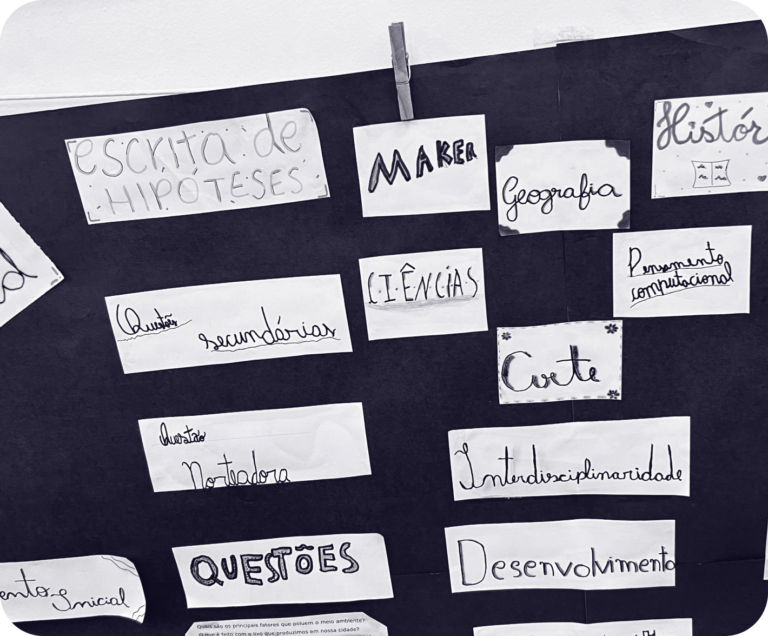 escrita de
HIPÓTESES
MAKER
Geografia
Histór
Pensamento
computacional
CIÊNCIAS
Questões
secundárias
Questão
Norteadora
Interdisciplinaridade
QUESTÕES
Desenvolvimento
ento Inicial
Quais são os principais fatores que poluem o meio ambiente?
O que é feito com o lixo que produzimos em nossa cidade?